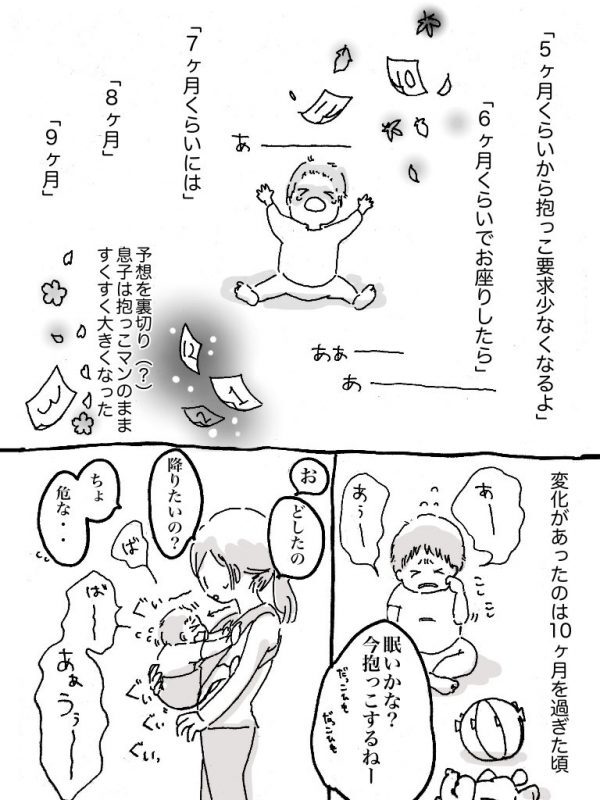 「5ヶ月くらいから抱っこ要求少なくなるよ」
10
「6ヶ月くらいでお座りしたら」
11
「7ヶ月くらいには」
あ――――
「8ヶ月」
「9ヶ月」
あぁ――
あ――――
12
1
2
3
予想を裏切り（？）
息子は抱っこマンのまま
すくすく大きくなった
変化があったのは10ヶ月を過ぎた頃
あー
あぅー
ここここ
眠いかな？
今抱っこするねー
だっこひも
だっこひも
お
どしたの
降りたいの？
ちょ
危な・・
ば
ばーー
あぁ
うぅーー
ぐいぐい
ぐぃ
ぐぃ
ぐぃ